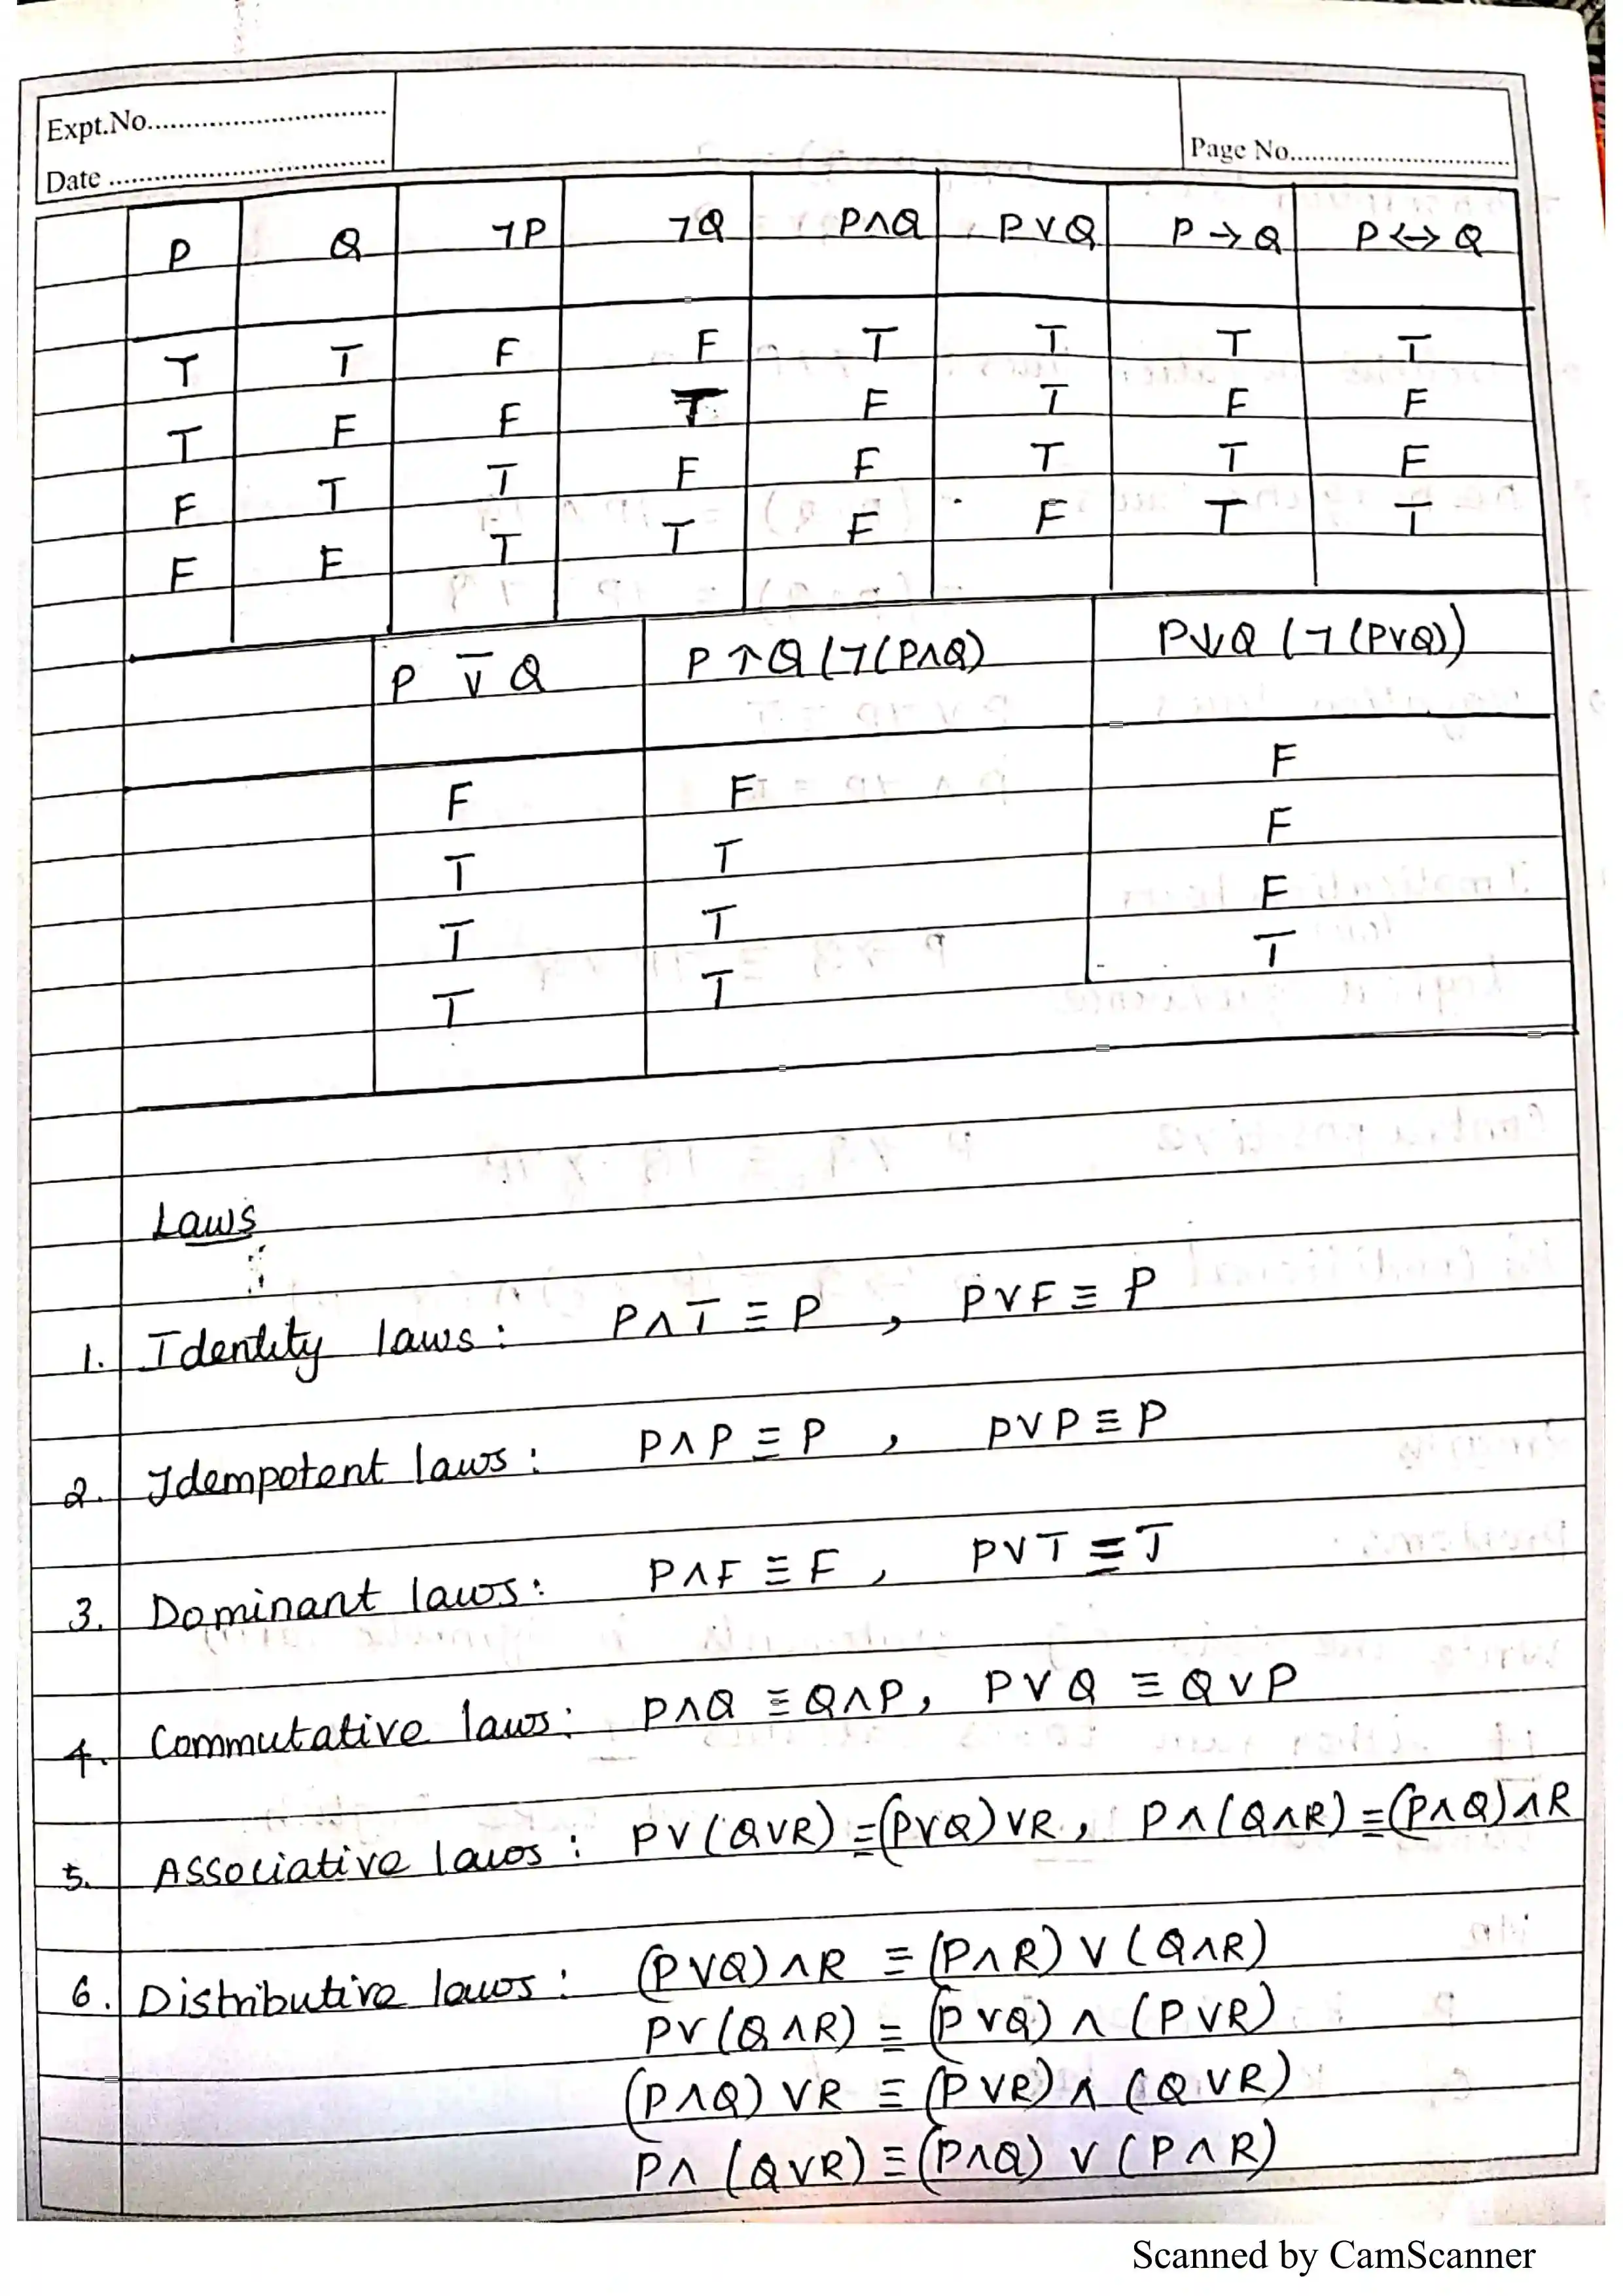 Expt.No..............................
Date ....................................
Page No..............................
P Q ¬P ¬Q P∧Q P∨Q P→Q P↔Q
T T F F T T T T
T F F T F T F F
F T T F F T T F
F F T T F F T T
P ⊽ Q P↑Q (¬(P∧Q) P↓Q (¬(P∨Q))
F F F
T T F
T T F
T T T
Laws
1. Identity laws : P∧T ≡ P , P∨F ≡ P
2. Idempotent laws : P∧P ≡ P , P∨P ≡ P
3. Dominant laws : P∧F ≡ F , P∨T ≡ T
4. Commutative laws : P∧Q ≡ Q∧P, P∨Q ≡ Q∨P
5. Associative laws : P∨(Q∨R) ≡ (P∨Q)∨R, P∧(Q∧R) ≡ (P∧Q)∧R
6. Distributive laws : (P∨Q)∧R ≡ (P∧R)∨(Q∧R)
P∨(Q∧R) ≡ (P∨Q)∧(P∨R)
(P∧Q)∨R ≡ (P∨R)∧(Q∨R)
P∧(Q∨R) ≡ (P∧Q)∨(P∧R)
Scanned by CamScanner